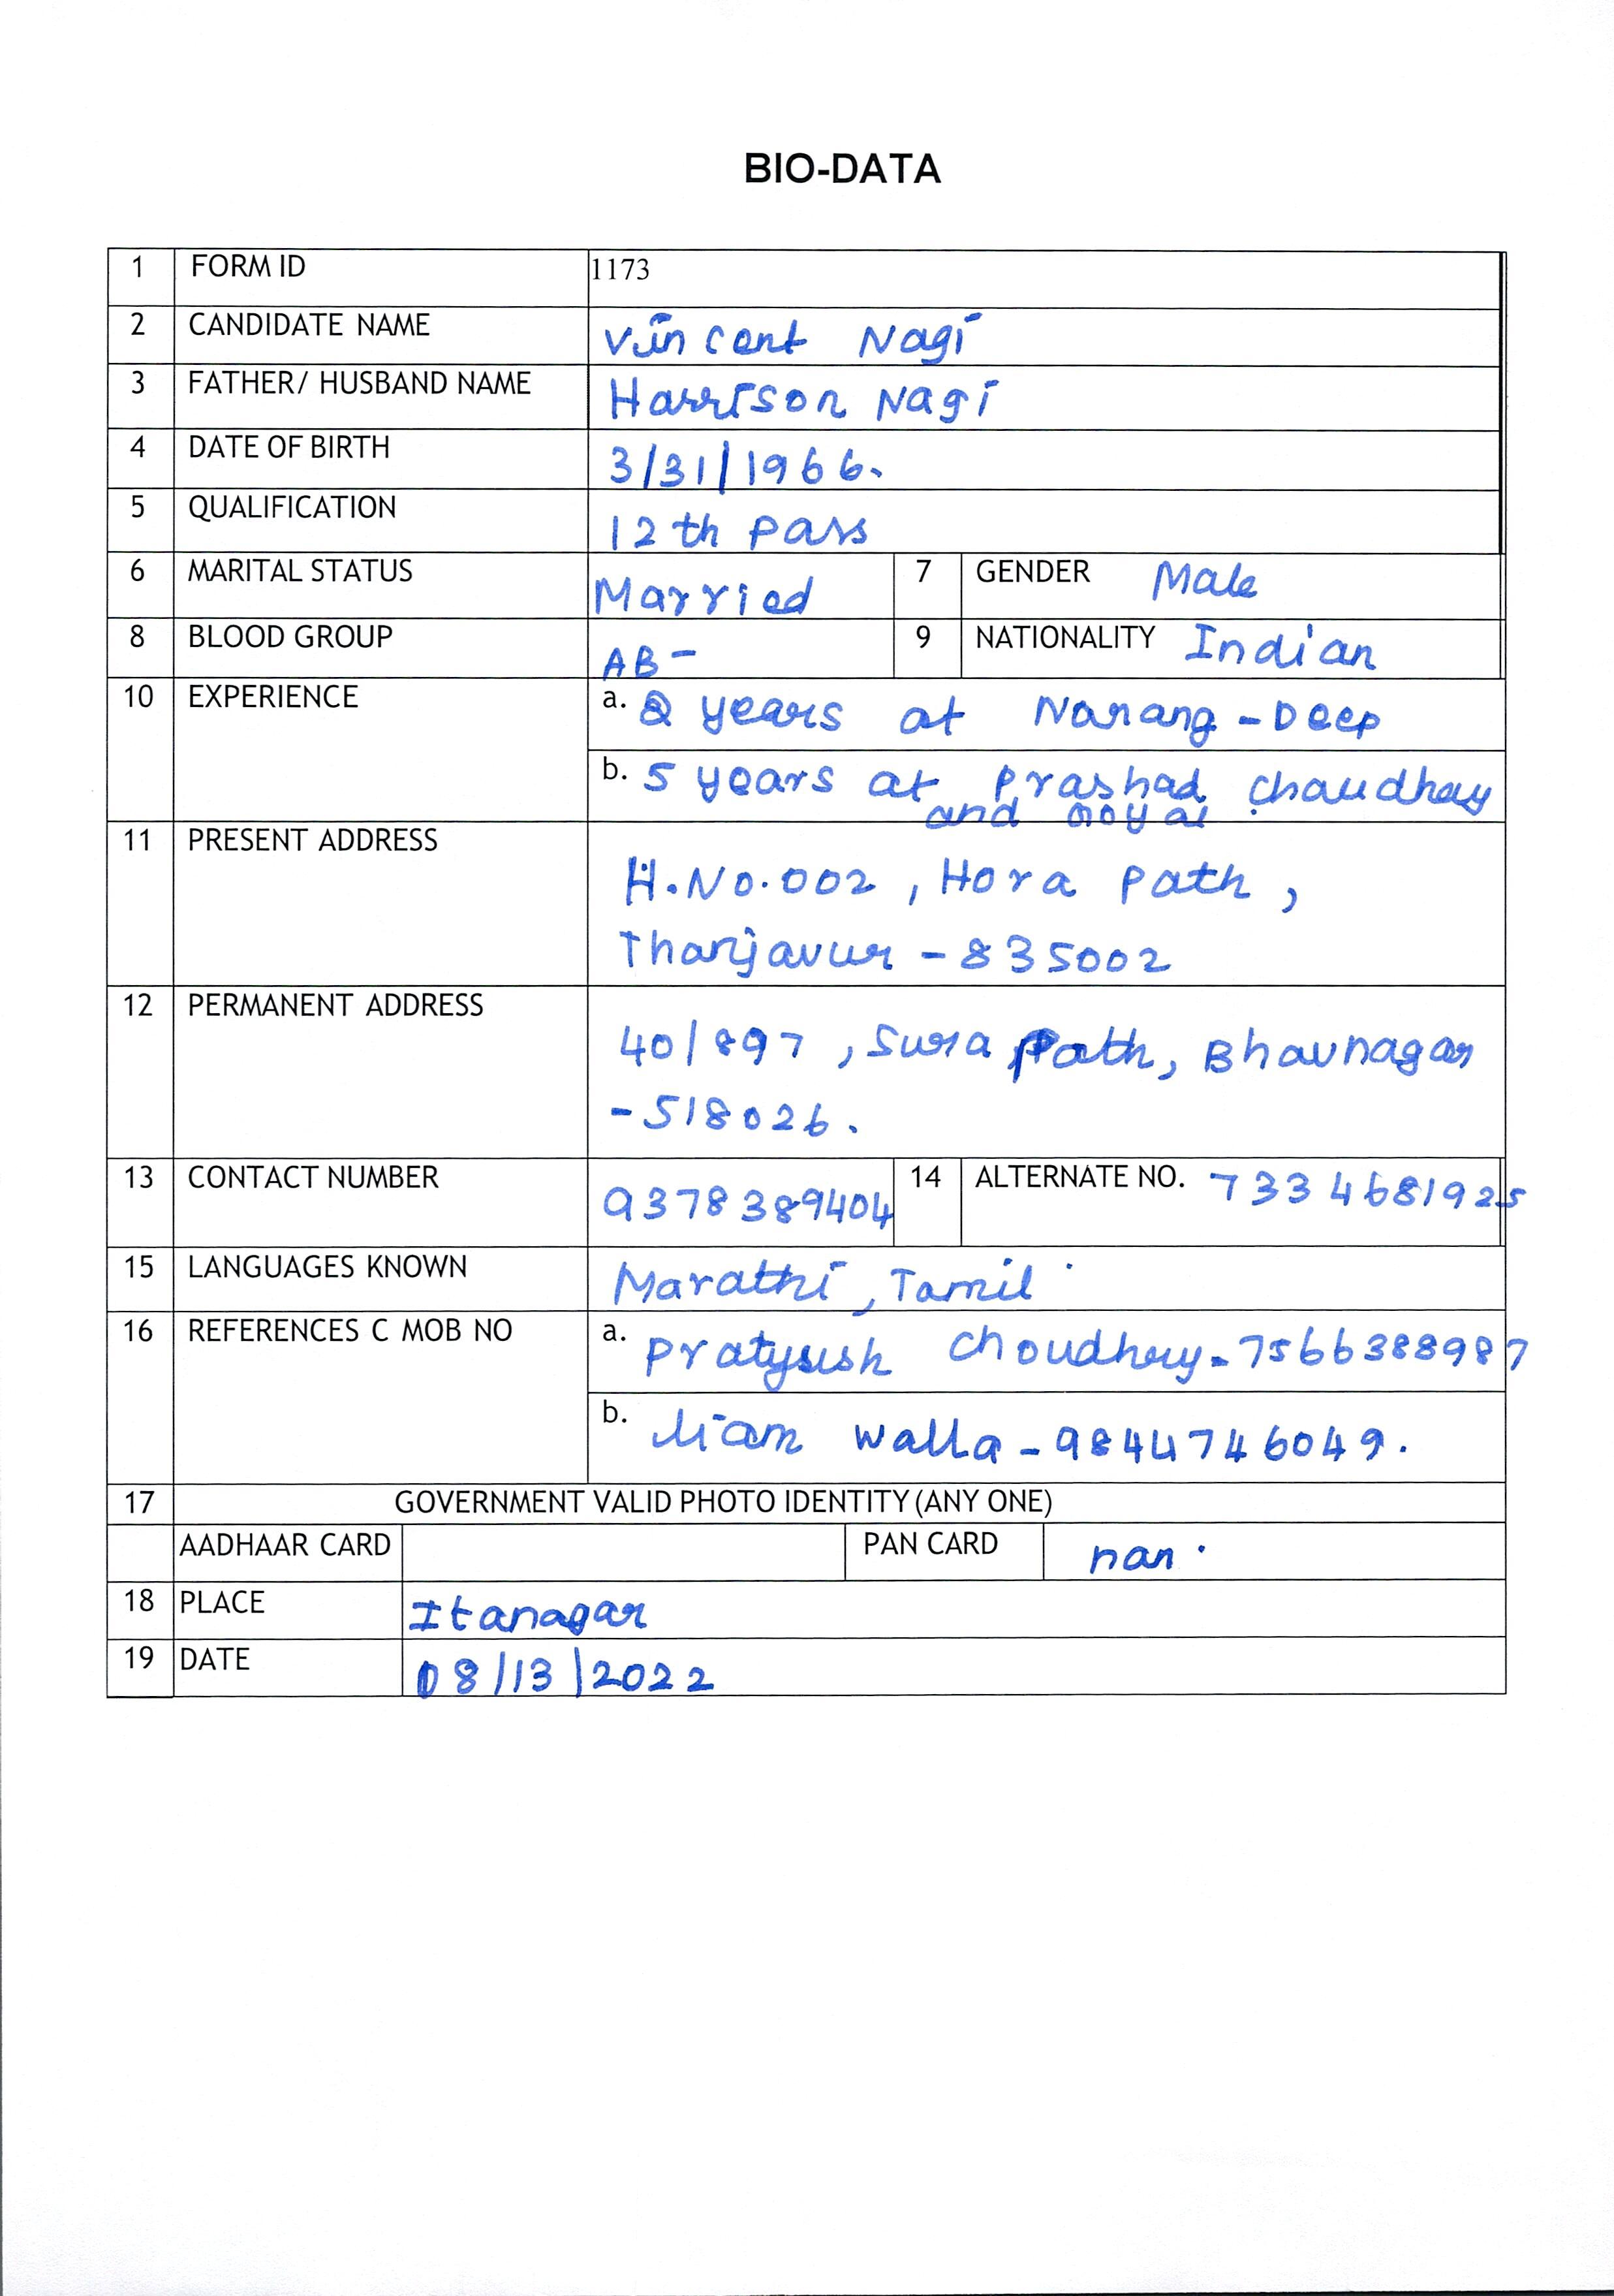 BIO-DATA
1 FORM ID 1173
2 CANDIDATE NAME Vincent Nagi
3 FATHER/ HUSBAND NAME Harrison Nagi
4 DATE OF BIRTH 3/31/1966.
5 QUALIFICATION 12th pass
6 MARITAL STATUS Married 7 GENDER Male
8 BLOOD GROUP AB- 9 NATIONALITY Indian
10 EXPERIENCE a. 2 years at Narang-Deep
b. 5 years at Prashad Chaudhary
and
11 PRESENT ADDRESS
H.No.002, Hora Path,
Thanjavur - 835002
12 PERMANENT ADDRESS
40/897, Sura Path, Bhavnagar
-518026.
13 CONTACT NUMBER 9378389404 14 ALTERNATE NO. 7334681925
15 LANGUAGES KNOWN Marathi, Tamil
16 REFERENCES C MOB NO a. Pratyush Choudhury-7566388987
b. Liam Walla-9844746049.
17 GOVERNMENT VALID PHOTO IDENTITY (ANY ONE)
AADHAAR CARD PAN CARD nan.
18 PLACE Itanagar
19 DATE 08/13/2022